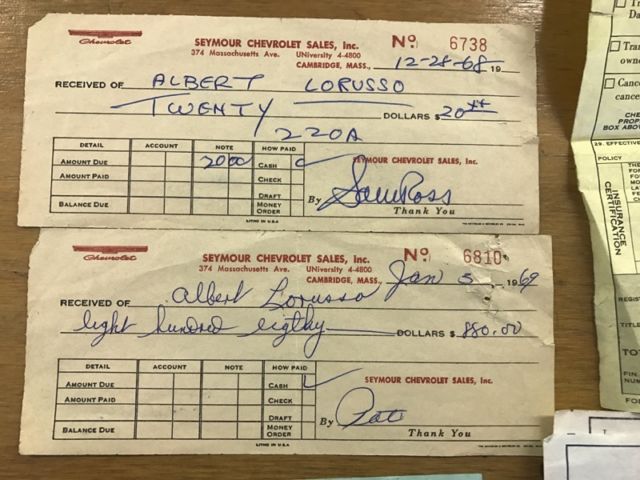 Chevrolet
SEYMOUR CHEVROLET SALES, Inc. No. 6738
374 Massachusetts Ave. UNiversity 4-4800
CAMBRIDGE, MASS., 12-28-68 19
RECEIVED OF ALBERT LORUSSO
TWENTY DOLLARS $ 20
220A
DETAIL ACCOUNT NOTE HOW PAID
AMOUNT DUE 20 00 CASH
AMOUNT PAID CHECK
DRAFT
BALANCE DUE MONEY ORDER
SEYMOUR CHEVROLET SALES, Inc.
By Sam Ross
Thank You
LITHO IN U.S.A.
Chevrolet
SEYMOUR CHEVROLET SALES, Inc. No. 6810
374 Massachusetts Ave. UNiversity 4-4800
CAMBRIDGE, MASS., Jan 5 1969
RECEIVED OF Albert Lorusso
Eight hundred eigthy DOLLARS $ 880.00
DETAIL ACCOUNT NOTE HOW PAID
AMOUNT DUE CASH
AMOUNT PAID CHECK
DRAFT
BALANCE DUE MONEY ORDER
SEYMOUR CHEVROLET SALES, Inc.
By Pat
Thank You
LITHO IN U.S.A.
Tran
owne
Cance
cance
CHE
PROP
BOX ABOV
29. EFFECTIVE
POLICY
INSURANCE
CERTIFICATION
REGIST
TITLE
TOT
FIN.
NUM
FO